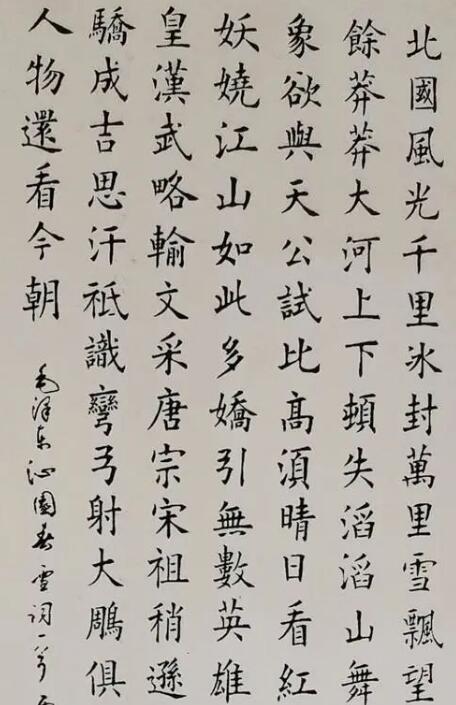 北國風光千里冰封萬里雪飄望
餘莽莽大河上下頓失滔滔山舞
象欲與天公試比高須晴日看紅
妖嬈江山如此多嬌引無數英雄
皇漢武略輸文采唐宗宋祖稍遜
驕成吉思汗祇識彎弓射大雕俱
人物還看今朝
毛泽东沁園春雪词一首